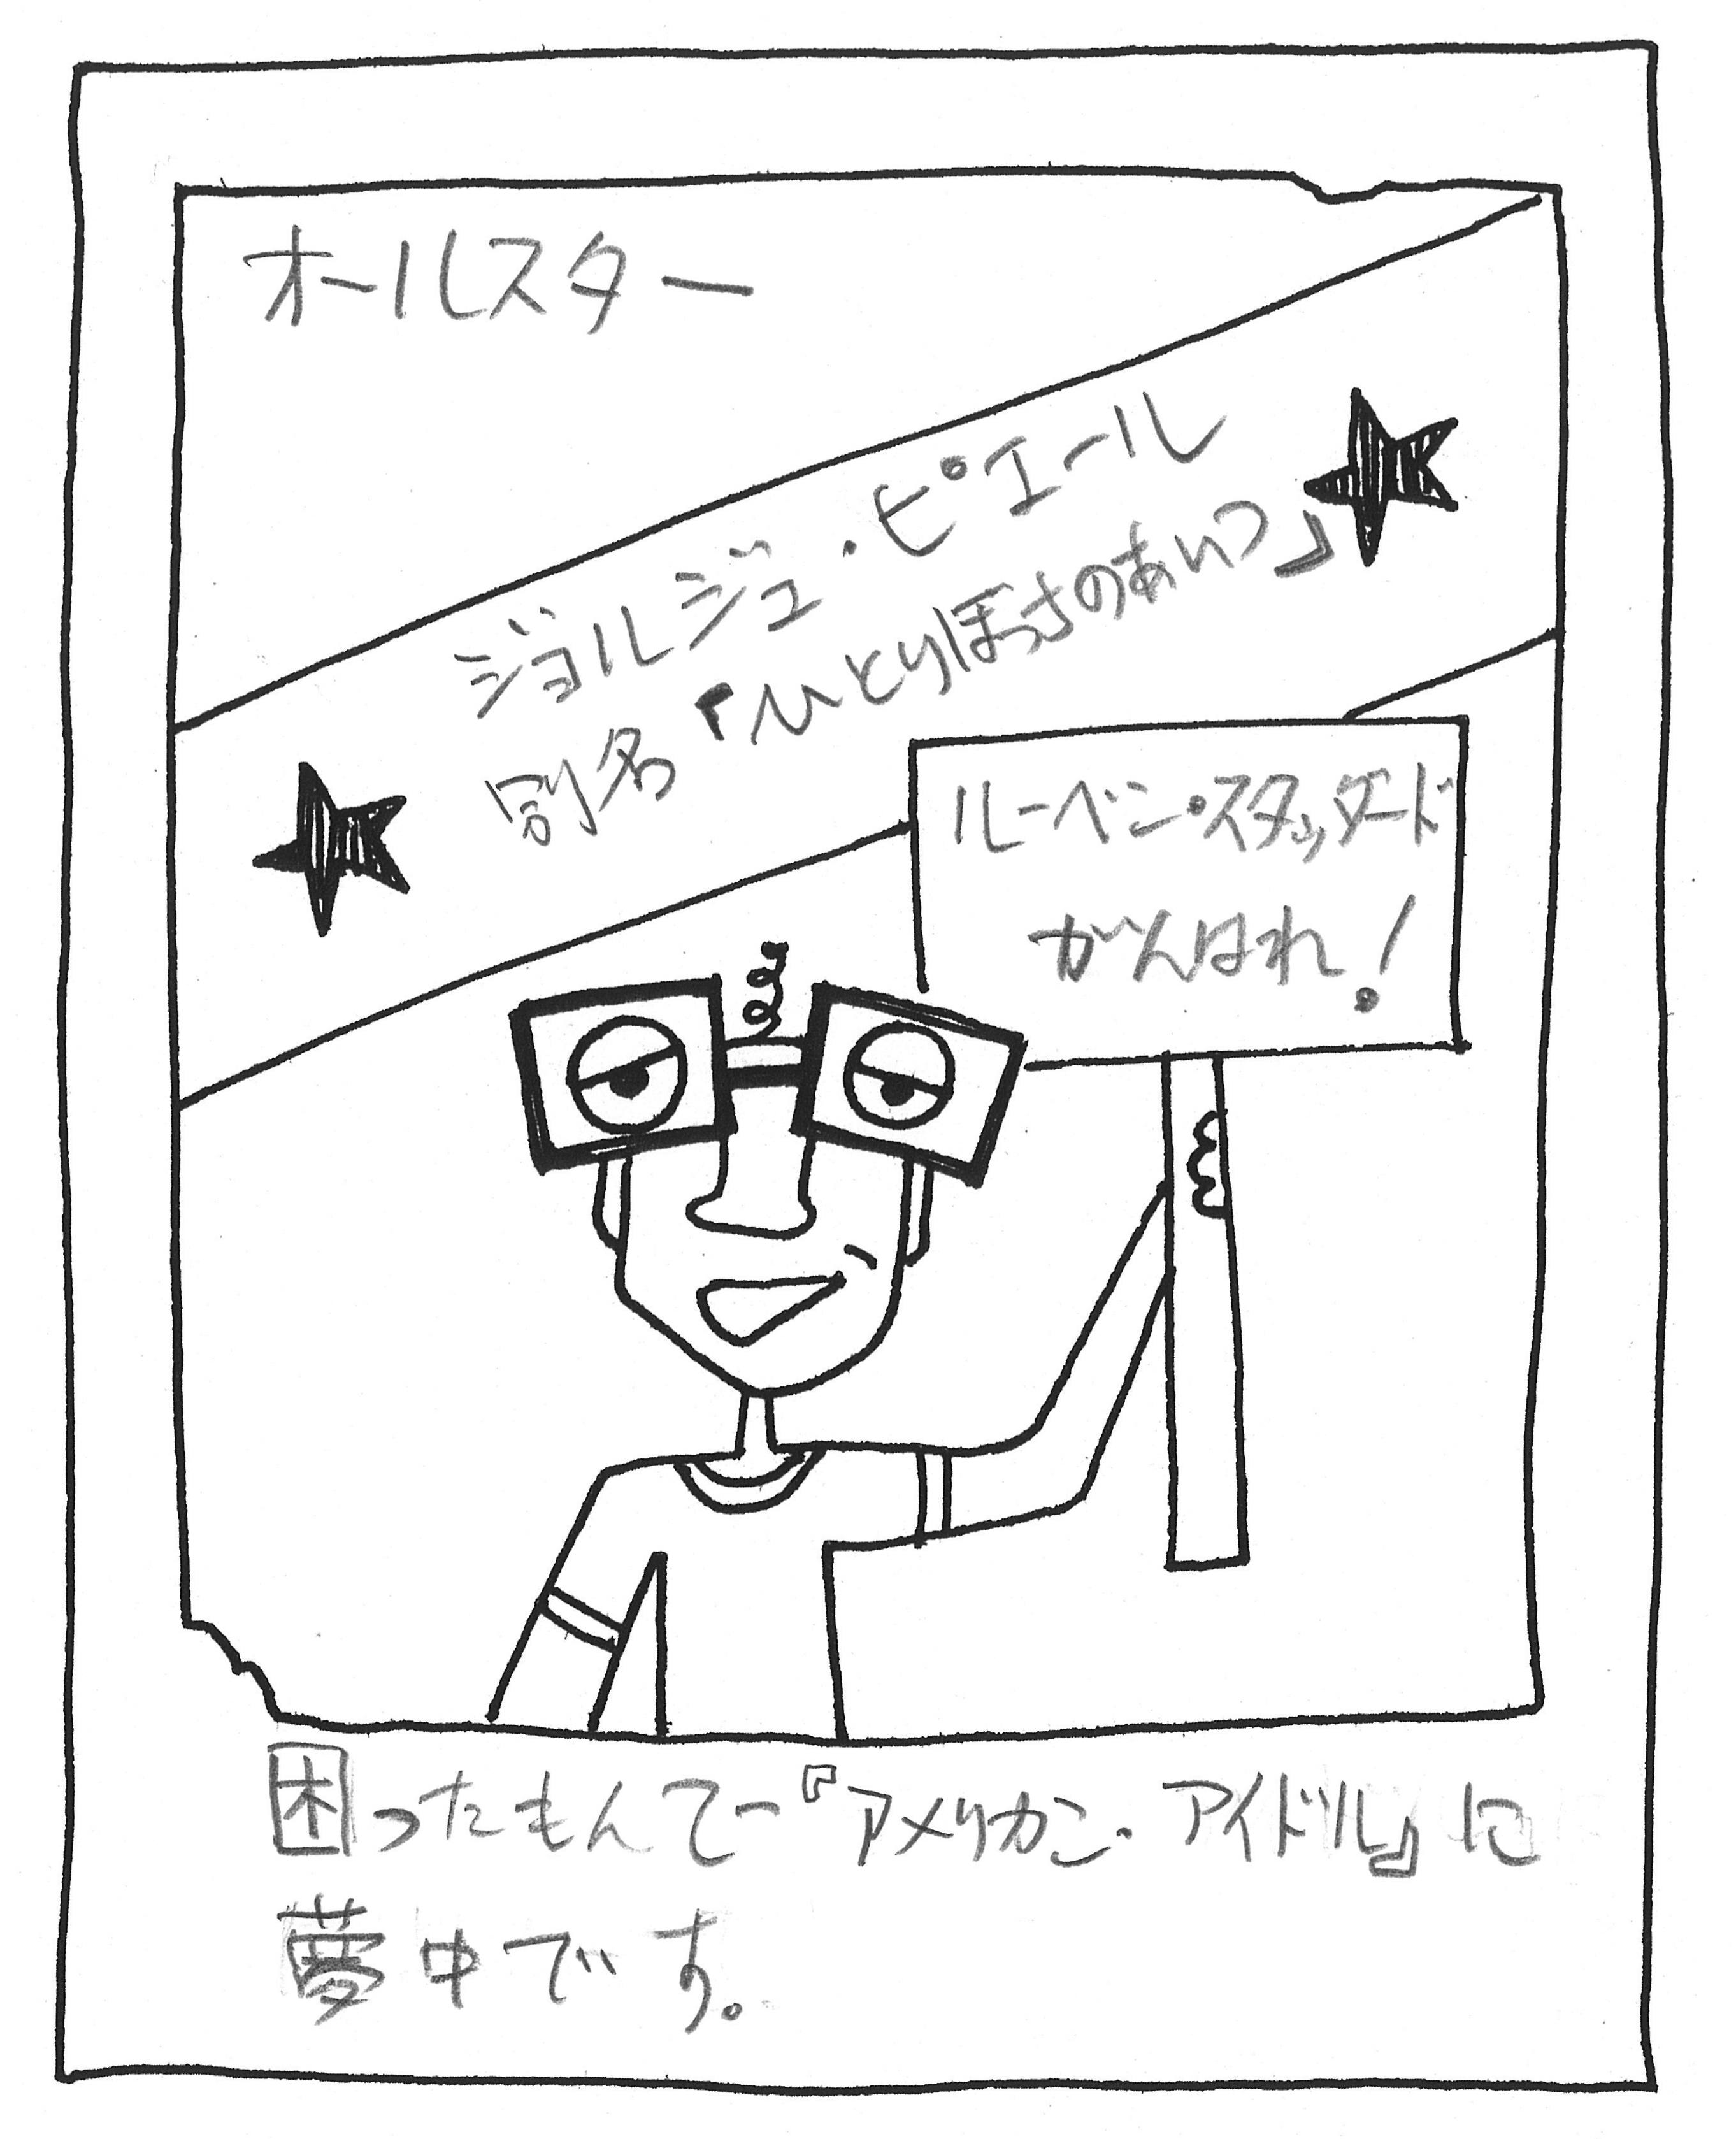 オールスター
ジョルジュ・ピエール
別名『ひとりぼっちのあいつ』
ルーベン・スタッダード
がんばれ！
困ったもんでー『アメリカン・アイドル』に
夢中です。